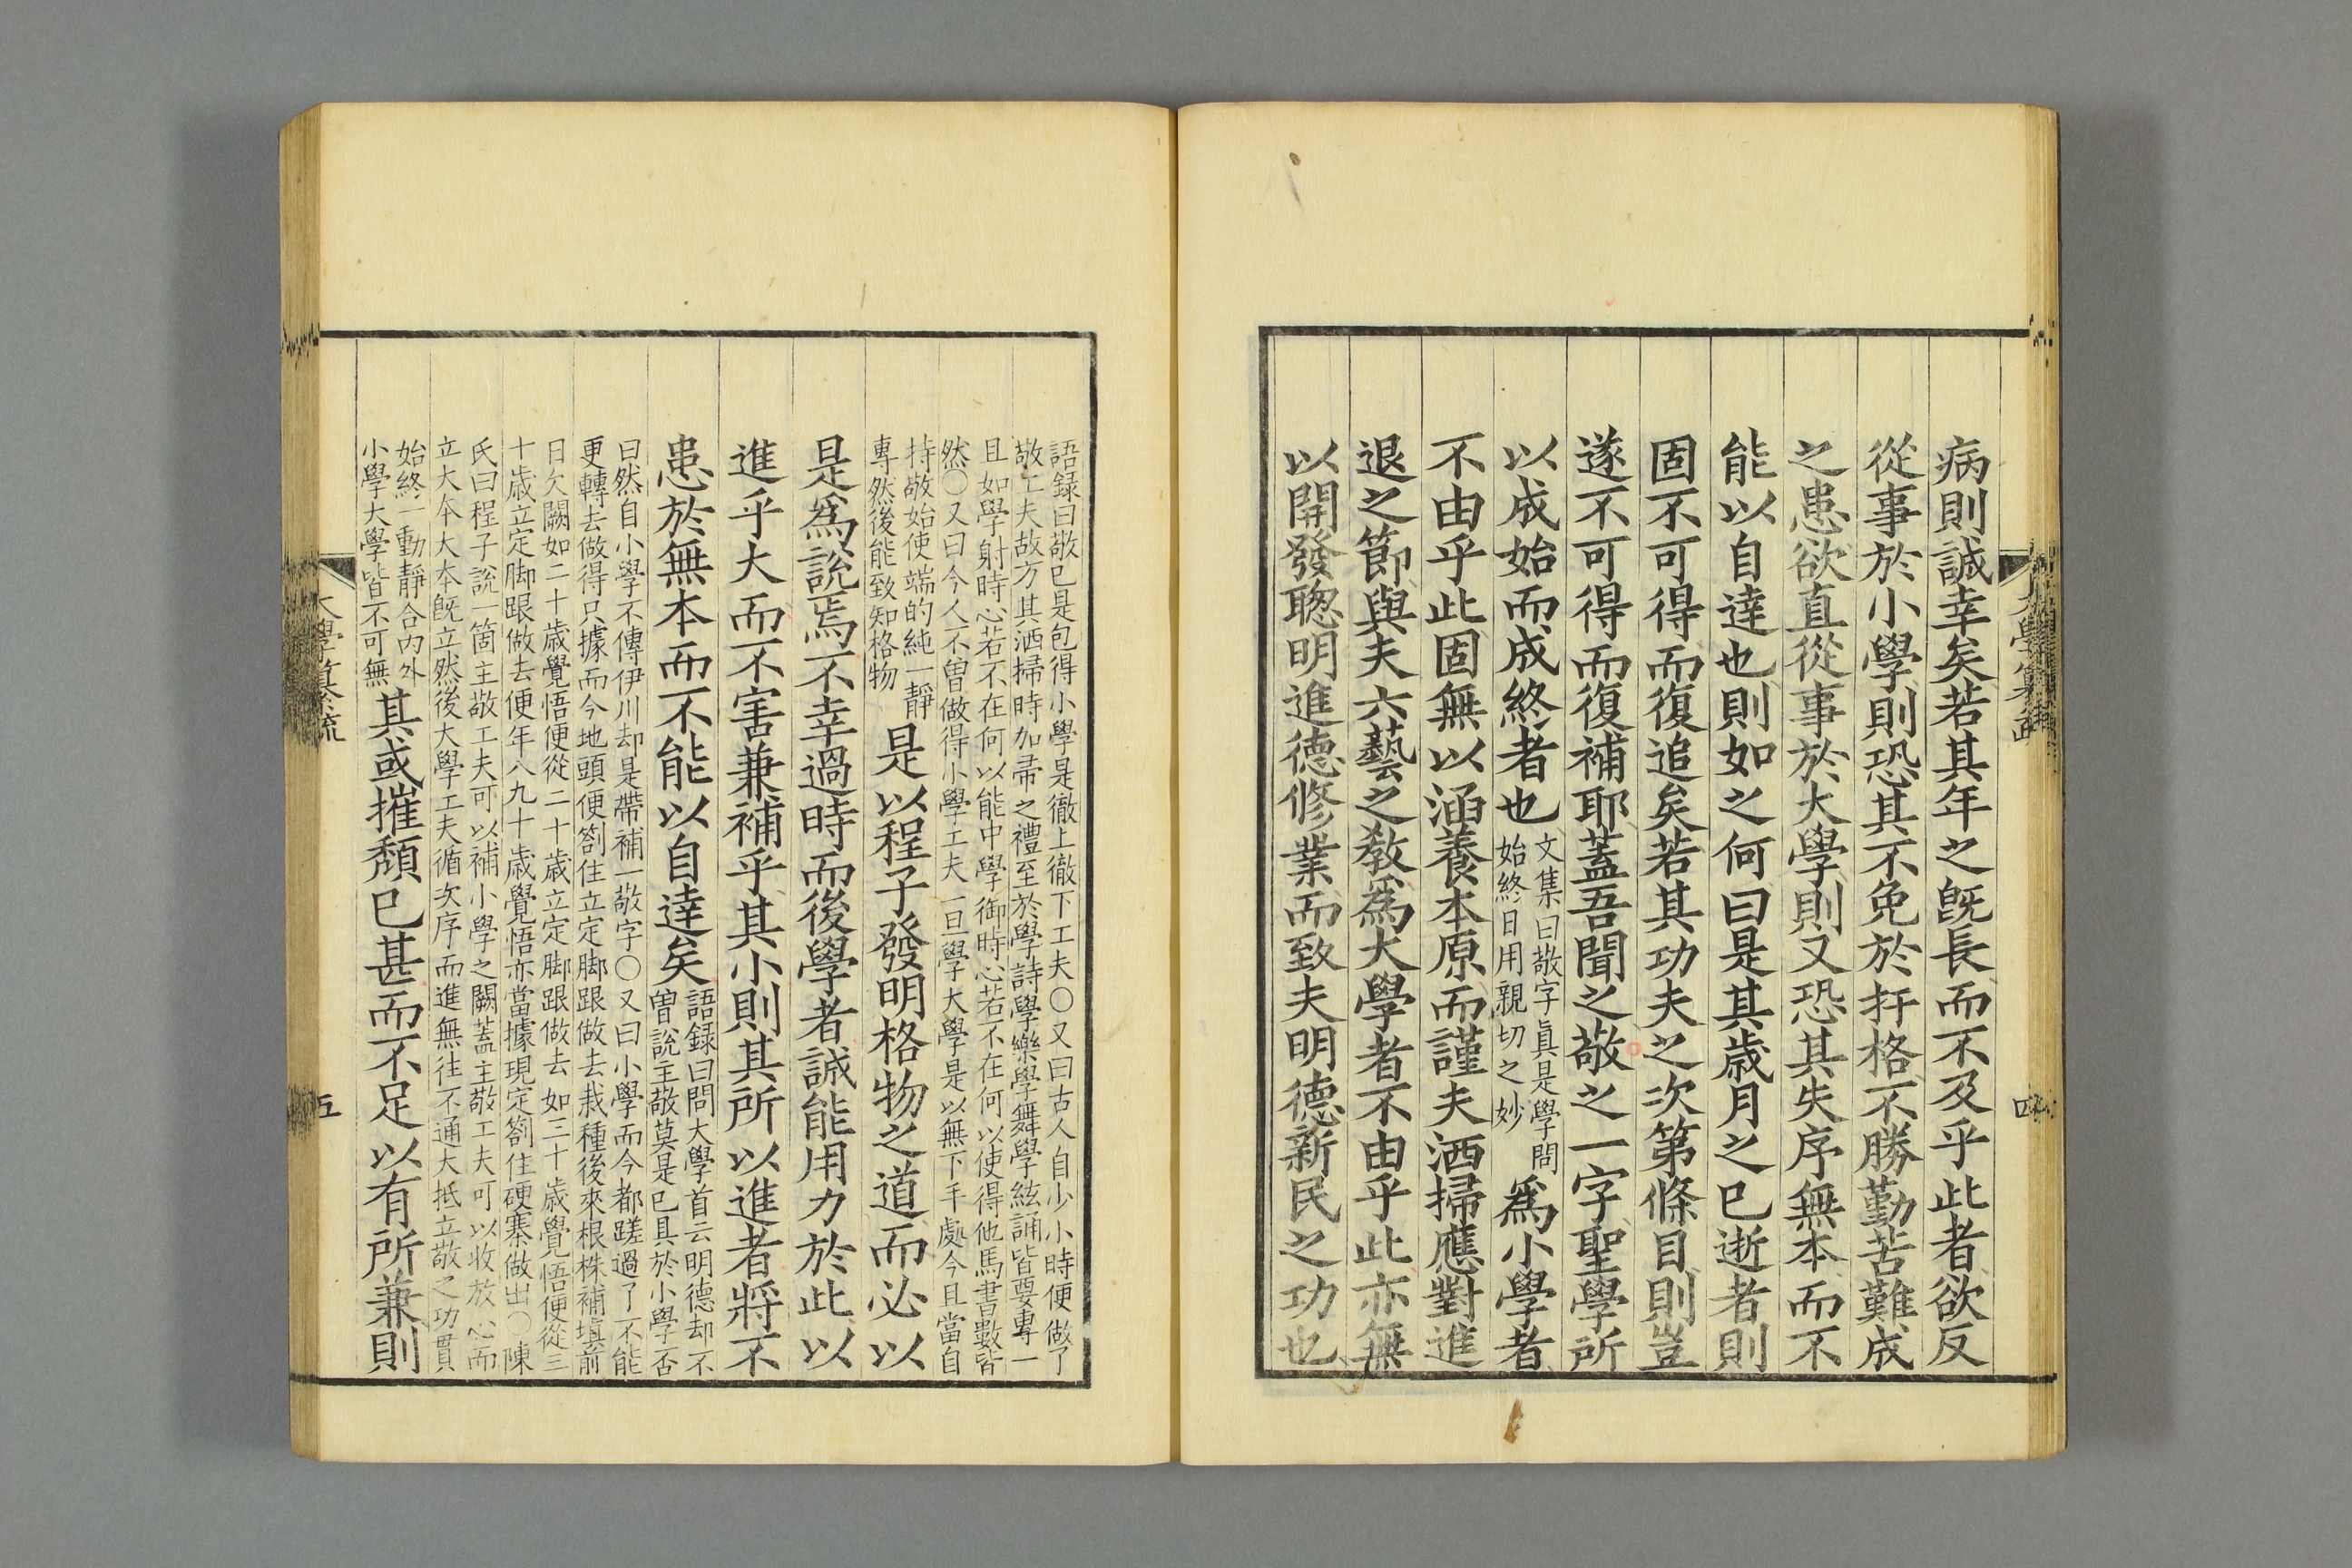 病則誠幸矣若其年之旣長而不及乎此者欲反
從事於小學則恐其不免於扞格不勝勤苦難成
之患欲直從事於大學則又恐其失序無本而不
能以自達也則如之何曰是其歲月之已逝者則
固不可得而復追矣若其功夫之次第條目則豈
遂不可得而復補耶蓋吾聞之敬之一字聖學所
以成始而成終者也
文集曰敬字眞是學問
始終日用親切之妙
爲小學者
不由乎此固無以涵養本原而謹夫洒掃應對進
退之節與夫六藝之敎爲大學者不由乎此亦無
以開發聰明進德修業而致夫明德新民之功也
語録曰敬已是包得小學是徹上徹下工夫〇又曰古人自少小時便做了
敬工夫故方其洒掃時加帚之禮至於學詩學樂學舞學絃誦皆要專一
且如學射時心若不在何以能中學御時心若不在何以使得他馬書數皆
然〇又曰今人不曽做得小學工夫一旦學大學是以無下手處今且當自
持敬始使端的純一靜
專然後能致知格物
是以程子發明格物之道而必以
是爲說焉不幸過時而後學者誠能用力於此以
進乎大而不害兼補乎其小則其所以進者將不
患於無本而不能以自達矣
語録曰問大學首云明德却不
曽說主敬莫是已具於小學否
曰然自小學不傳伊川却是帶補一敬字〇又曰小學而今都蹉過了不能
更轉去做得只據而今地頭便劄住立定脚跟做去栽種後來根株補塡前
日欠闕如二十歲覺悟便從二十歲立定脚跟做去如三十歲覺悟便從三
十歲立定脚跟做去便年八九十歲覺悟亦當據現定劄住硬寨做出〇陳
氏曰程子說一箇主敬工夫可以補小學之闕蓋主敬工夫可以收放心而
立大本大本旣立然後大學工夫循次序而進無往不通大抵立敬之功貫
始終一動靜合內外
小學大學皆不可無
其或摧頹已甚而不足以有所兼則
五